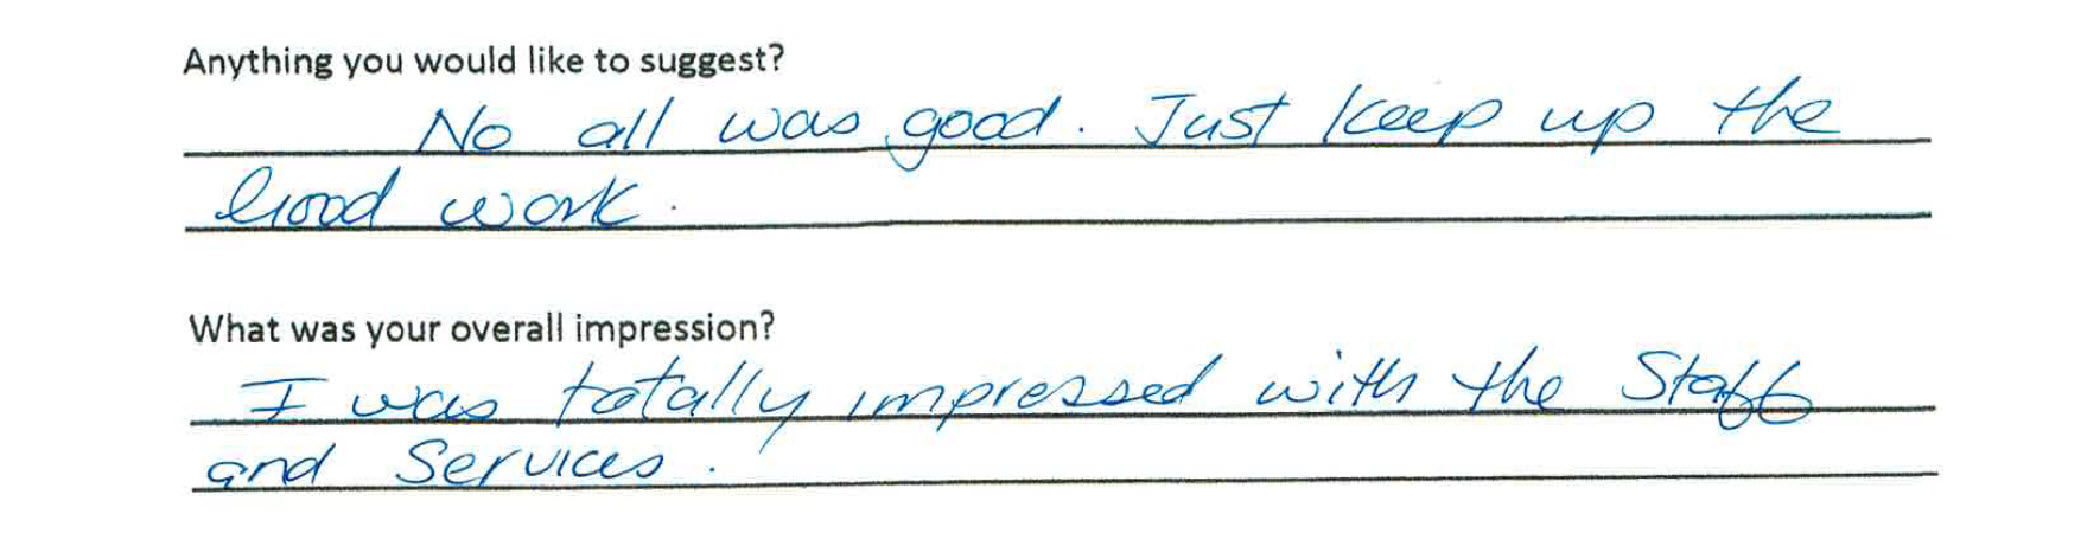 Anything you would like to suggest?
No all was good. Just keep up the
Good work.
What was your overall impression?
I was totally impressed with the Staff
and Services.